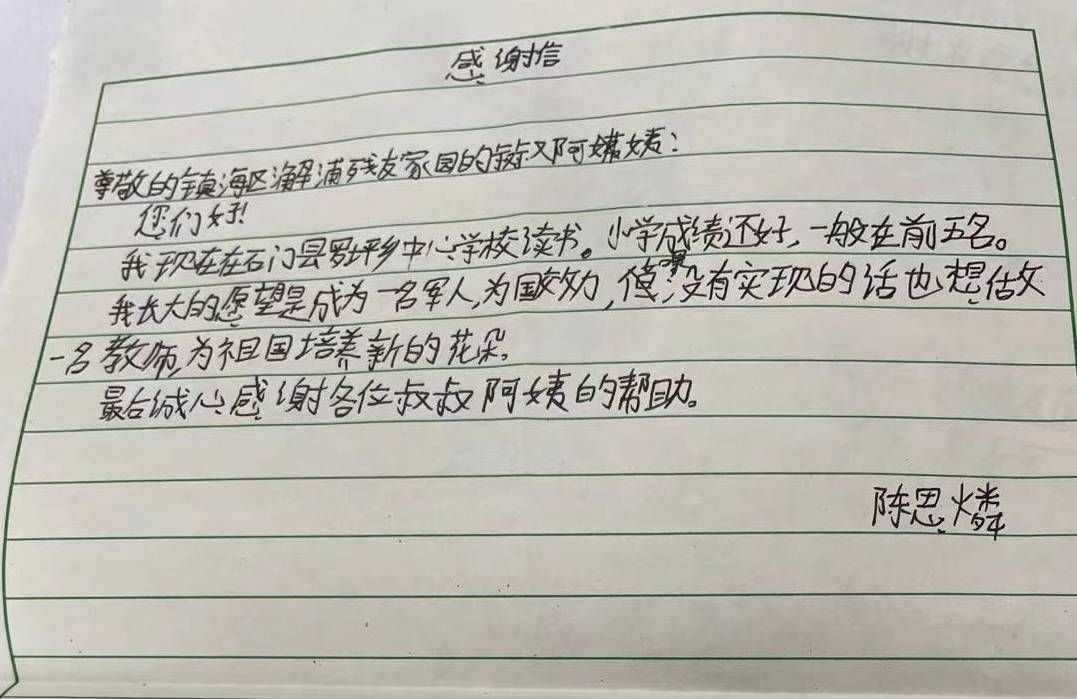 感谢信
尊敬的镇海区澥浦残友家园的叔叔阿姨：
您们好！
我现在在石门县罗坪乡中心学校读书。小学成绩还好，一般在前五名。
我长大的愿望是成为一名军人，为国效力，没有实现的话也想做
一名教师，为祖国培养新的花朵。
最后诚心感谢各位叔叔阿姨的帮助。
陈思燐